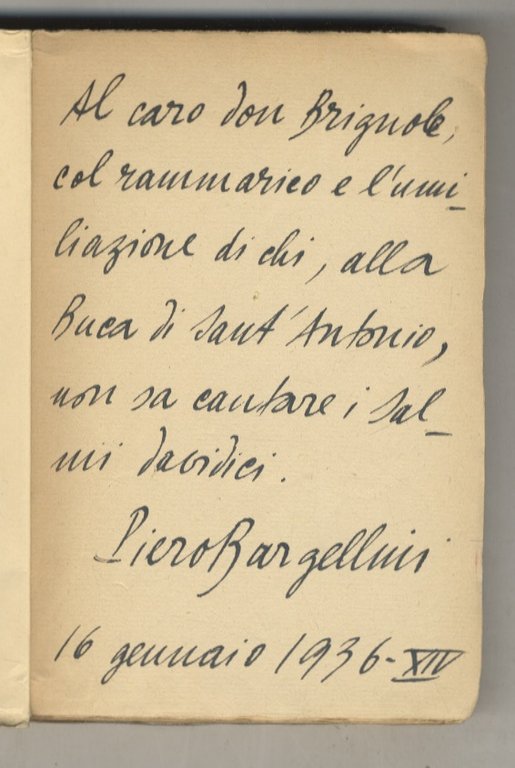 Al caro don Brignole,
col rammarico e l'umi-
liazione di chi, alla
Buca di Sant'Antonio,
non sa cantare i Sal-
mi davidici.
Piero Bargellini
16 gennaio 1936-XIV